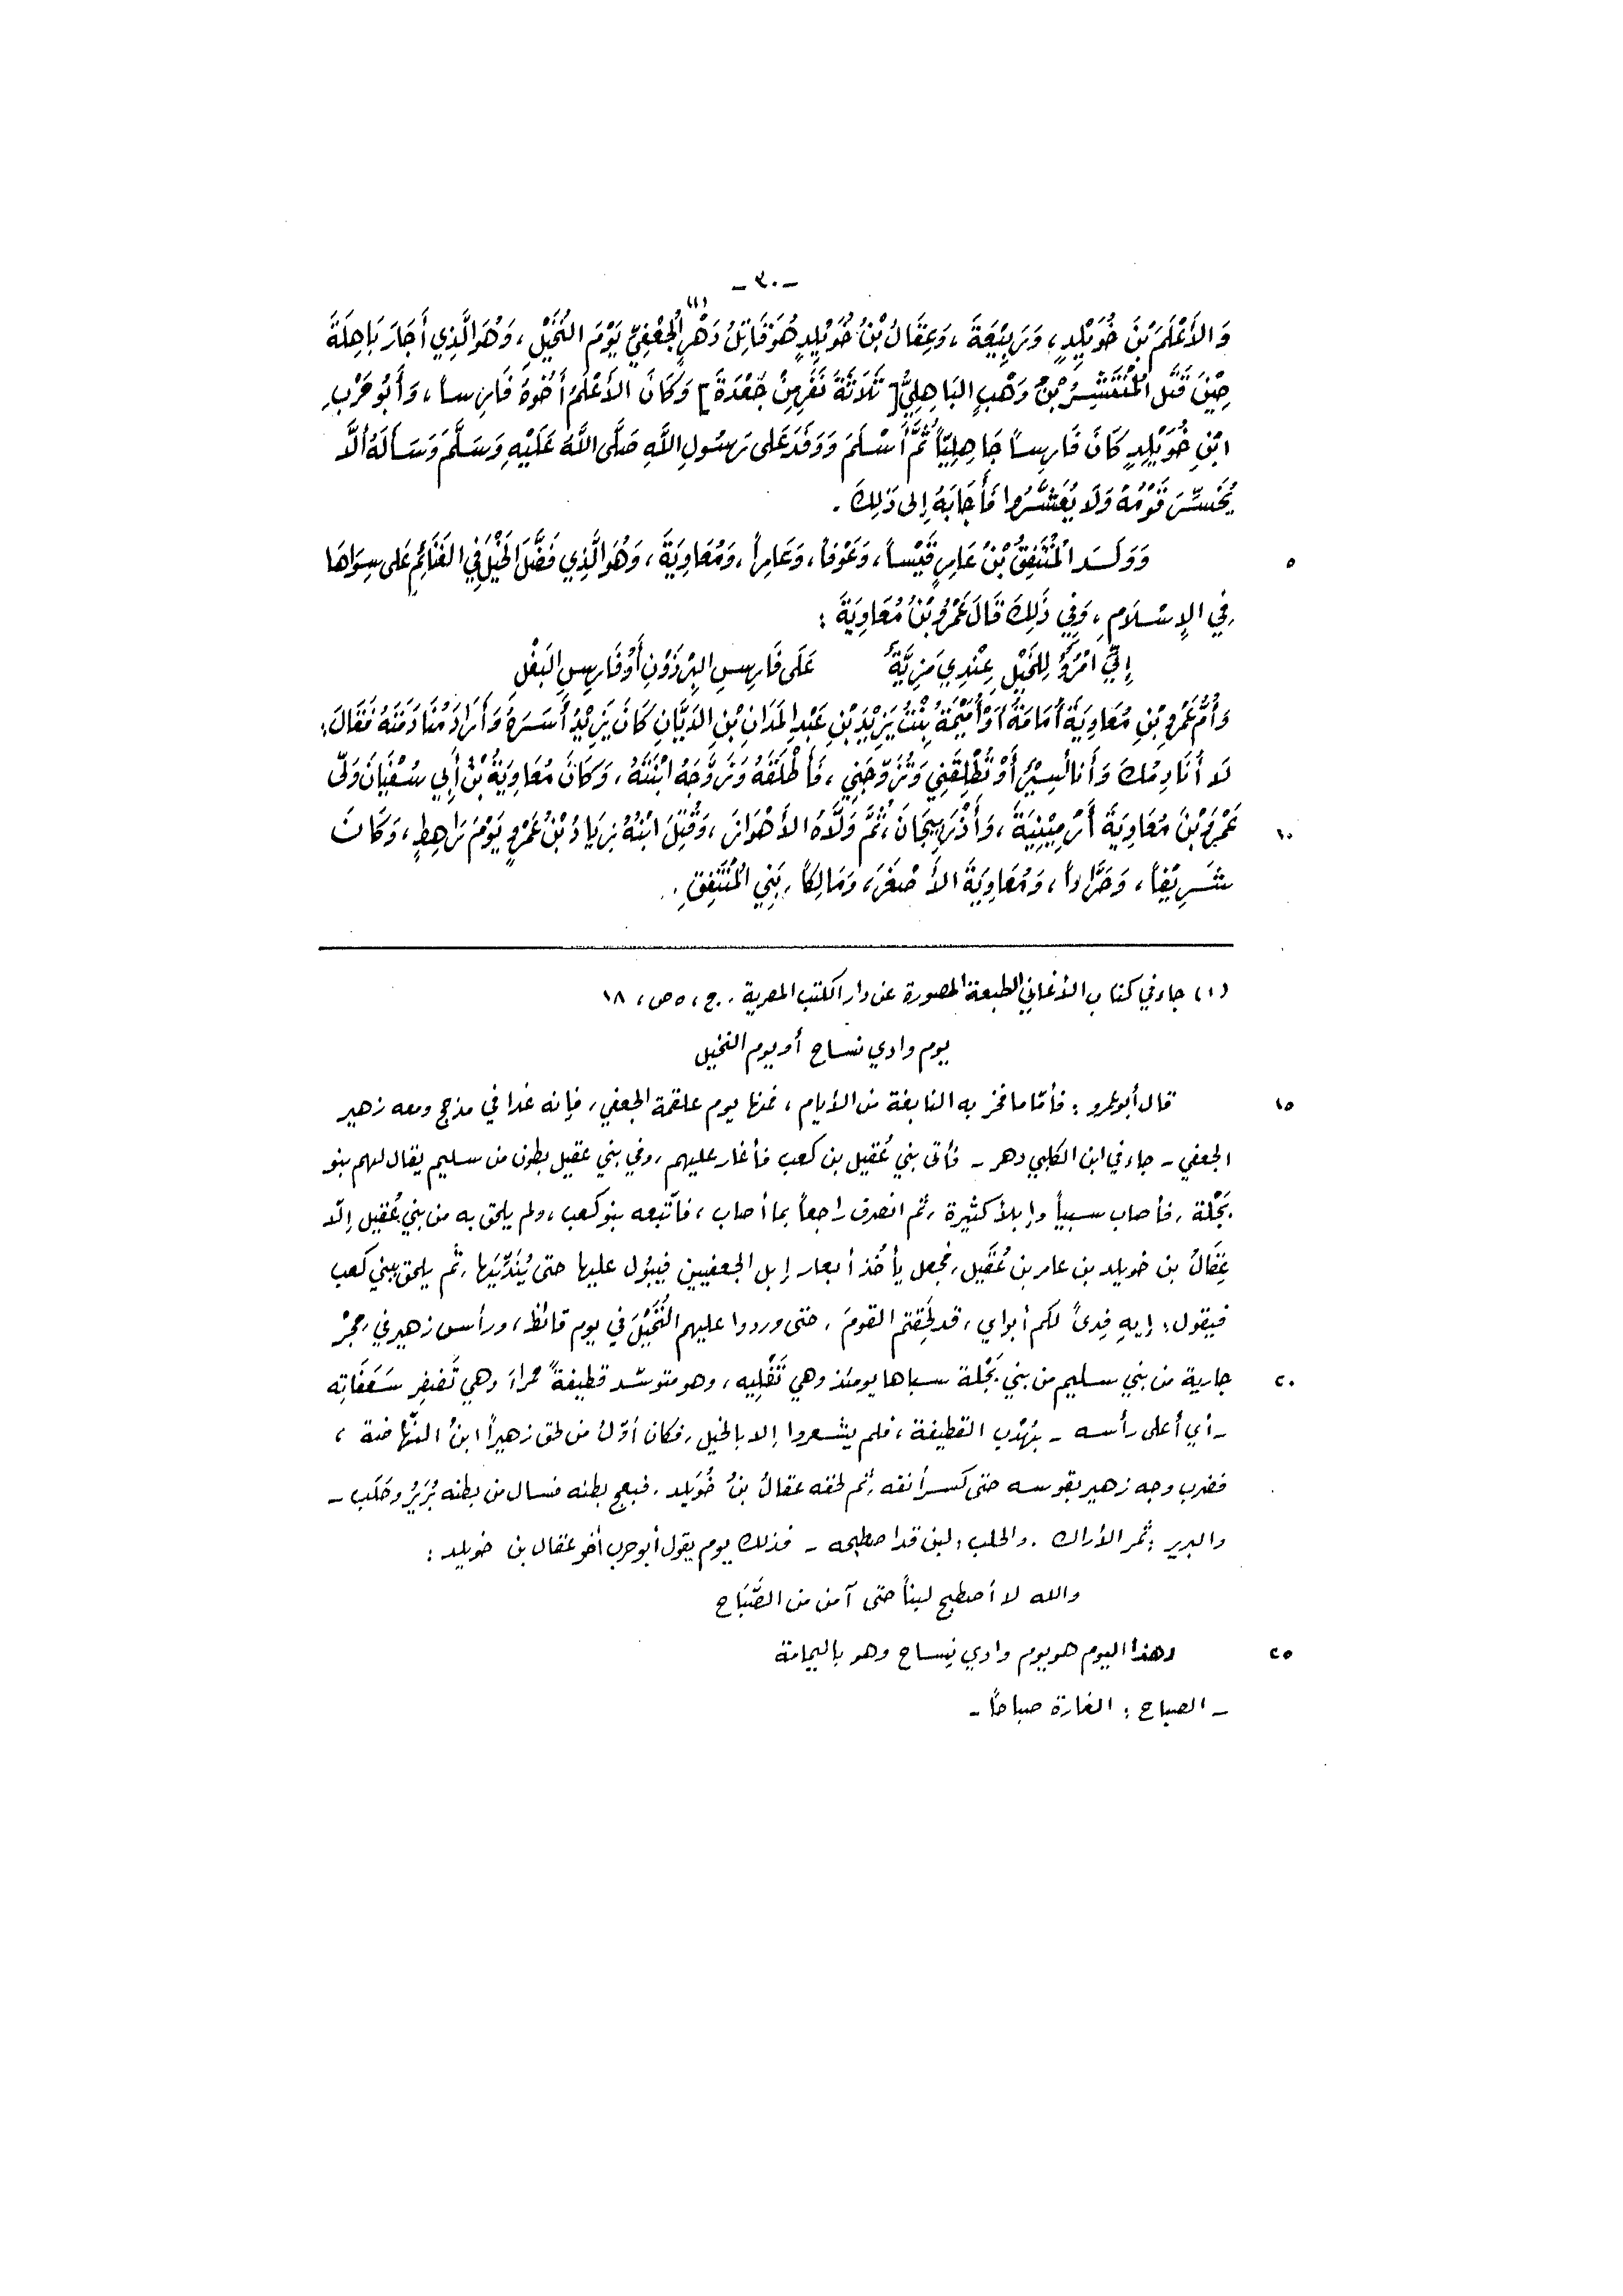 -٣٠-
وَالأَعْلَمَ بْنَ خُوَيْلِدٍ، وَرَبِيْعَةَ، وَعِقَالُ بْنُ خُوَيْلِدٍ هُوَ قَاتِلُ دَهْرٍ الجُعْفِيِّ (١) يَوْمَ النُّخَيْلِ، وَهُوَ الَّذِي أَجَارَ بَاهِلَةَ
حِيْنَ قَتَلَ المُنْتَشِرُ بْنُ وَهْبٍ البَاهِلِيُّ [ثَلَاثَةَ نَفَرٍ مِنْ جَعْدَةَ] وَكَانَ الأَعْلَمُ أَخُوهُ فَارِساً، وَأَبُو حَرْبِ
ابْنِ خُوَيْلِدٍ كَانَ فَارِساً جَاهِلِيّاً ثُمَّ أَسْلَمَ وَوَفَدَ عَلَى رَسُولِ اللَّهِ صَلَّى اللَّهُ عَلَيْهِ وَسَلَّمَ وَسَأَلَهُ أَلَّا
يُحْشَرَ قَوْمُهُ وَلَا يُعَشَّرُوا فَأَجَابَهُ إِلَى ذَلِكَ.
٥ وَوَلَدَ المُنْتَفِقُ بْنُ عَامِرٍ قَيْساً، وَعَوْفاً، وَعَامِراً، وَمُعَاوِيَةَ، وَهُوَ الَّذِي فَضَّلَ الخَيْلَ فِي الغَنَائِمِ عَلَى سِوَاهَا
فِي الإِسْلَامِ، وَفِي ذَلِكَ قَالَ عَمْرُو بْنُ مُعَاوِيَةَ:
إِنِّي امْرُؤٌ لِلخَيْلِ عِنْدِي مَزِيَّةٌ عَلَى فَارِسِ البِرْذَوْنِ أَوْ فَارِسِ البَغْلِ
وَأُمُّ عَمْرِو بْنِ مُعَاوِيَةَ أُمَامَةُ أَوْ أُمَيْمَةُ بِنْتُ يَزِيْدَ بْنِ عَبْدِ المَدَانِ بْنِ الدَّيَّانِ كَانَ يَزِيْدُ أَسَرَهُ وَأَرَادَ مُنَادَمَتَهُ فَقَالَ:
لَا أُنَادِمُكَ وَأَنَا أَسِيْرٌ أَوْ تُطْلِقَنِي وَتُزَوِّجَنِي، فَأَطْلَقَهُ وَزَوَّجَهُ ابْنَتَهُ، وَكَانَ مُعَاوِيَةُ بْنُ أَبِي سُفْيَانَ وَلَّى
١٠ عَمْرَو بْنَ مُعَاوِيَةَ أَرْمِيْنِيَةَ، وَأَذْرَبِيجَانَ، ثُمَّ وَلَّاهُ الأَهْوَازَ، وَقُتِلَ ابْنُهُ زِيَادُ بْنُ عَمْرٍو يَوْمَ رَاهِطٍ، وَكَانَ
شَرِيْفاً، وَحَرَّاداً، وَمُعَاوِيَةَ الأَصْغَرَ، وَمَالِكاً، بَنِي المُنْتَفِقِ.
(١) جاء في كتاب الأغاني الطبعة المصورة عن دار الكتب المصرية، ج، ٥ ص، ١٨
يوم وادي نساح أو يوم النخيل
١٥ قال أبو عمرو: فأمّا ما فخر به النابغة من الأيام، فمنها يوم علقمة الجعفي، فإنه غدا في مذحج ومعه زهير
الجعفي - جاء في ابن الكلبي دهر - فأتى بني عُقيل بن كعب فأغار عليهم، وفي بني عقيل بطون من سليم يقال لهم بنو
بَجْلة، فأصاب سبياً وإبلاً كثيرة، ثم انصرف راجعاً بما أصاب، فاتّبعه بنو كعب، ولم يلحق به من بني عُقيل إلّا
عِقَالُ بن خويلد بن عامر بن عُقَيل، فجعل يأخُذ أبعار إبل الجعفيين فيبُول عليها حتى يُنَدِّيَها، ثُم يلحق ببني كعب
فيقول: إيهِ فِدىً لكم أبواي، قد لَحِقتم القومَ، حتى وردوا عليهم النُّخَيْلَ في يوم قائظ، ورأس زهير في حِجْرِ
٢٠ جارية من بني سليم من بني بَجْلة سباها يومئذ وهي تَفْلِيه، وهو متوسّد قطيفةً حمراءَ وهي تَضفِر سَعَفَاتِه
- أي أعلى رأسه - بهُدْب القطيفة، فلم يشعروا إلا بالخيل، فكان أوّلُ من لحق زهيراً ابنُ النّهاضة،
فضرب وجه زهير بقوسه حتى كسر أنفه، ثم لحقه عقالُ بنُ خُوَيلد، فبعج بطنه فسال من بطنه بُرَيْرٌ وحَلَب -
والبرير: ثمر الأراك. والحلب: لبن قد اصطبحه - فذلك يوم يقول أبو حرب أخو عقال بن خويلد:
والله لا أصطبح لبناً حتى آمن من الصَّبَاح
٢٥ وهذا اليوم هو يوم وادي نِساح وهو باليمامة
- الصباح: الغارة صباحاً -